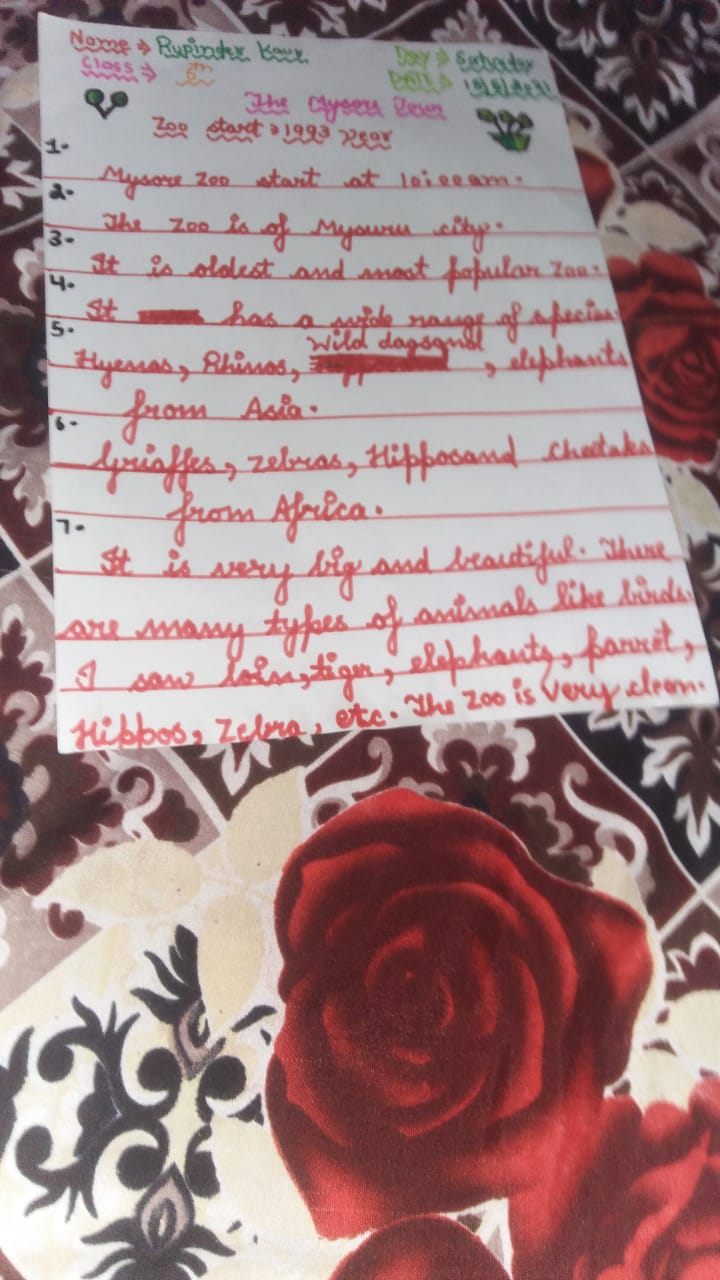 Name → Rupinder Kaur
Day → Saturday
Class → 6th
The Mysore Zour
Zoo start → 1993 year
1- Mysore Zoo start at 10:00am.
2- The Zoo is of Mysuru city.
3- It is oldest and most popular Zoo.
4- It has a wide range of species
Wild dogsand
5- Hyenas, Rhinos, , elephants
from Asia.
6- Griaffes, zebras, Hipposand cheetahs
from Africa.
7- It is very big and beautiful. There
are many types of animals like birds.
I saw loin, tiger, elephants, parrot,
Hippos, Zebra, etc. The Zoo is very clean.